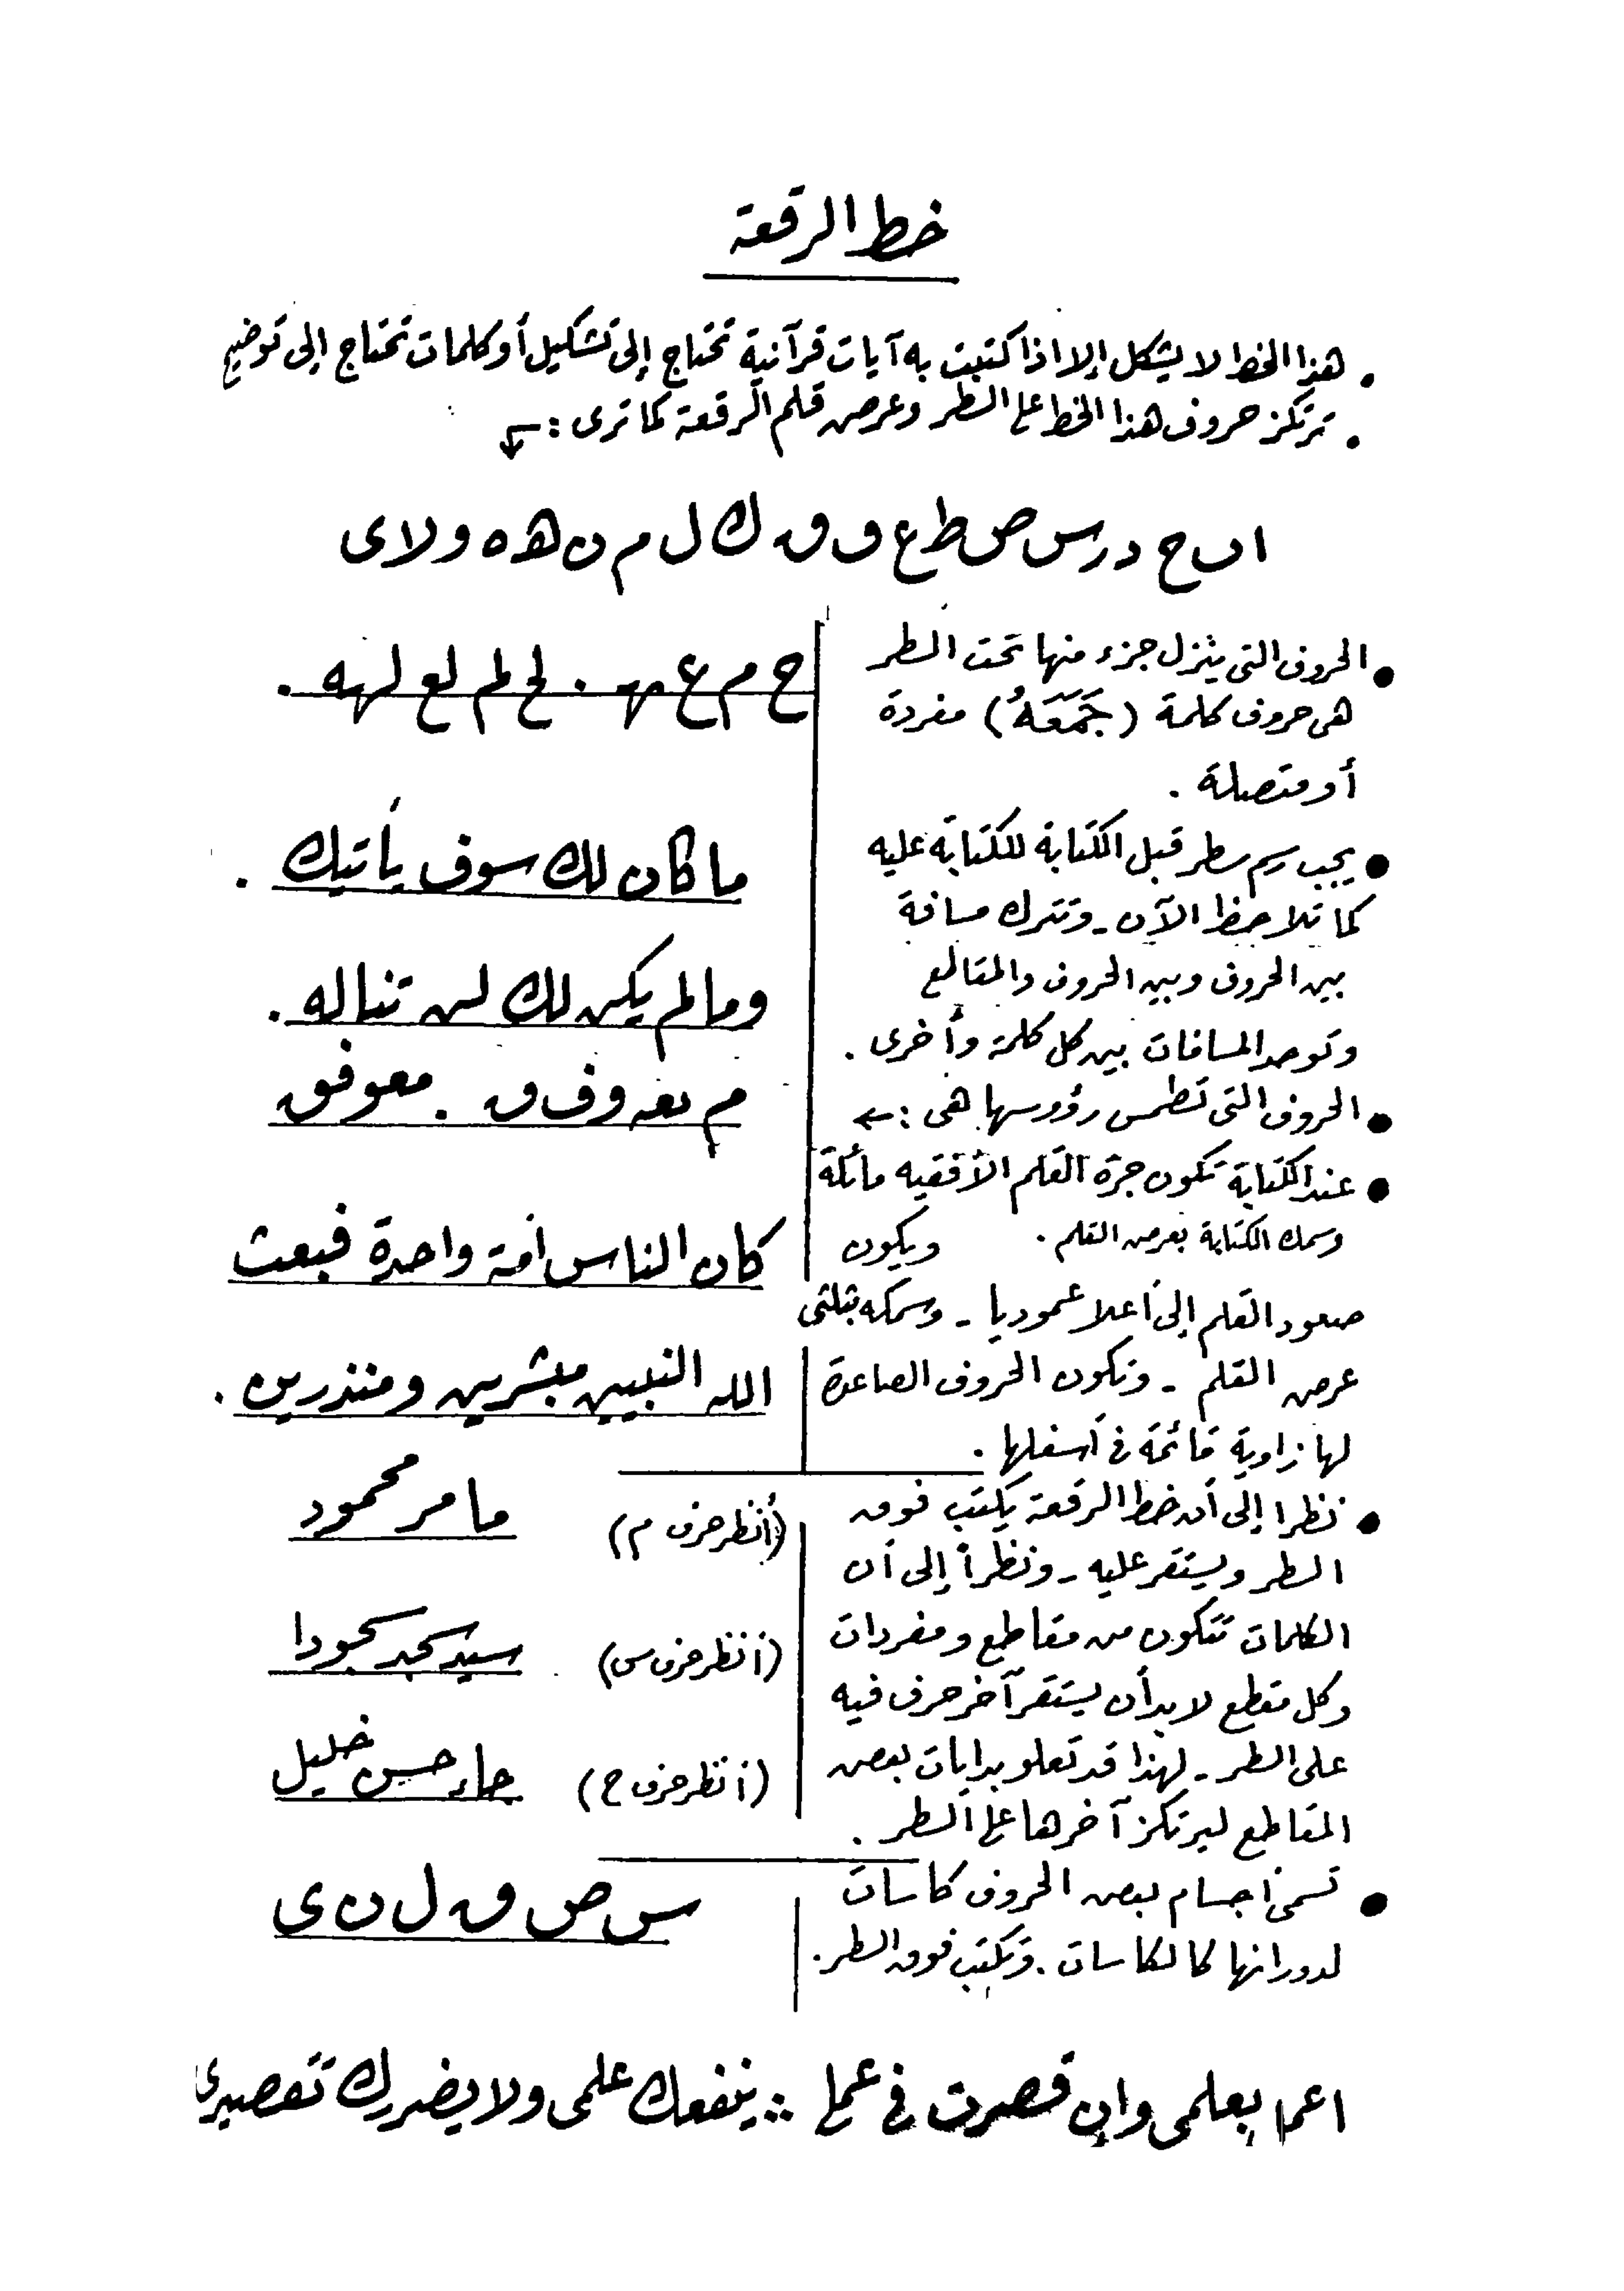 خط الرقعة
. هذا الخط لا يشكل إلا اذا كتبت به آيات قرآنية تحتاج إلى تشكيل أو كلمات تحتاج إلى توضيح
. ترتكز حروف هذا الخط على السطر وعرض قلم الرقعة كما ترى : ←
ا ب ح د ر س ص ط ع ف ق ك ل م ن ه ه و لا ى
● الحروف التى ينزل جزء منها تحت السطر
هى حروف كلمة (جَمَعَهُ) مفردة
أو متصلة .
ح م ع ـهـ . لح لم لع لهه .
● يجب رسم سطر قبل الكتابة للكتابة عليه
كما تلاحظ الآن - وتترك مسافة
بين الحروف وبين الحروف والمقاطع
وتوحد المسافات بين كل كلمة وأخرى .
ما كان لك سوف يأتيك .
وما لم يكن لك لن تناله .
● الحروف التى تطمس رؤوسها هى : ←
م ـعـ و ف ق . معوفق
● عند الكتابة تكون جرة القلم الأفقيه مائلة
وسمك الكتابة بعرض القلم . ويكون
صعود القلم إلى أعلا عموديا - وسمكه بثلثى
عرض القلم - وتكون الحروف الصاعدة
لها زاوية قائمة فى أسفلها .
كان الناس أمة واحدة فبعث
الله النبيين مبشرين ومنذرين .
● نظرا إلى أن خط الرقعة يكتب فوق
السطر ويستقر عليه - ونظراً إلى أن
الكلمات تتكون من مقاطع ومفردات
وكل مقطع لا بد أن يستقر آخر حرف فيه
على السطر - لهذا قد تعلو بدايات بعض
المقاطع ليرتكز آخرها على السطر .
(أنظر حرف م) مامر محمود
(أنظر حرف س) سيد سجد سجودا
(أنظر حرف ح) جاء حسين خليل
● تسمى أجسام بعض الحروف كاسات
لدورانها كالكاسات . وتكتب فوق السطر .
س ص ق ل ن ى
اعمل بعلمى وإن قصرت فى عملى ∴ ينفعك علمى ولا يضررك تقصيرى